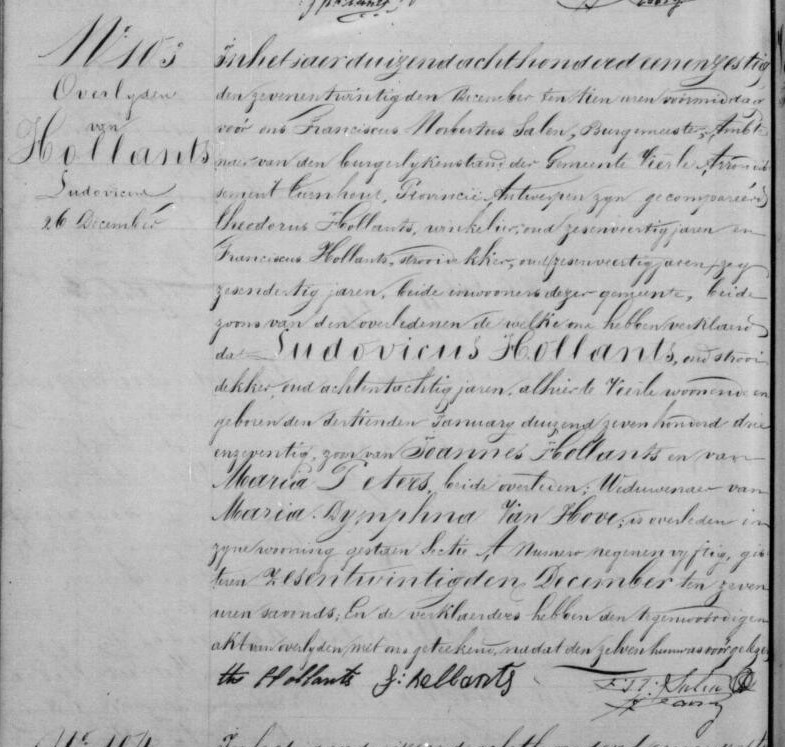 N° 103
Overlyden
van
Hollants
Ludovicus
26 December
In het jaer duizend acht honderd eenenzestig
den zevenentwintigden December ten tien uren voormiddag
vóór ons Franciscus Norbertus Salen, Burgemeester, Ambte
naer van den burgerlykenstand der Gemeente Vierle, Arrondis
sement Turnhout, Provincie Antwerpen zyn gecompareerd
theodorus Hollants, winkelier, oud zesenveertig jaren en
Franciscus Hollants, strooidekker, oud zesenveertig jaren, zeg
zesendertig jaren, beide inwooners dezer gemeente, beide
zoons van den overledenen de welke ons hebben verklaerd
dat Ludovicus Hollants, oud strooi
dekker, oud achtentachtig jaren, alhier te Vierle woonende en
geboren den dertienden January duizend zeven honderd drie
enzeventig, zoon van Joannes Hollants en van
Maria Peters, beide overleden; Weduwenaer van
Maria Dymphna Van Hove, is overleden in
zyne wooning gestaen Sectie A Numero negenenvyftig, gis
teren zesentwintigden December ten zeven
uren savonds; En de verklaerders hebben den tegenwoordigen
akt van overlyden met ons geteekend, nadat den zelven hun was voorgelezen
th Hollants f: Hollants
F: N: Salen
N° 104